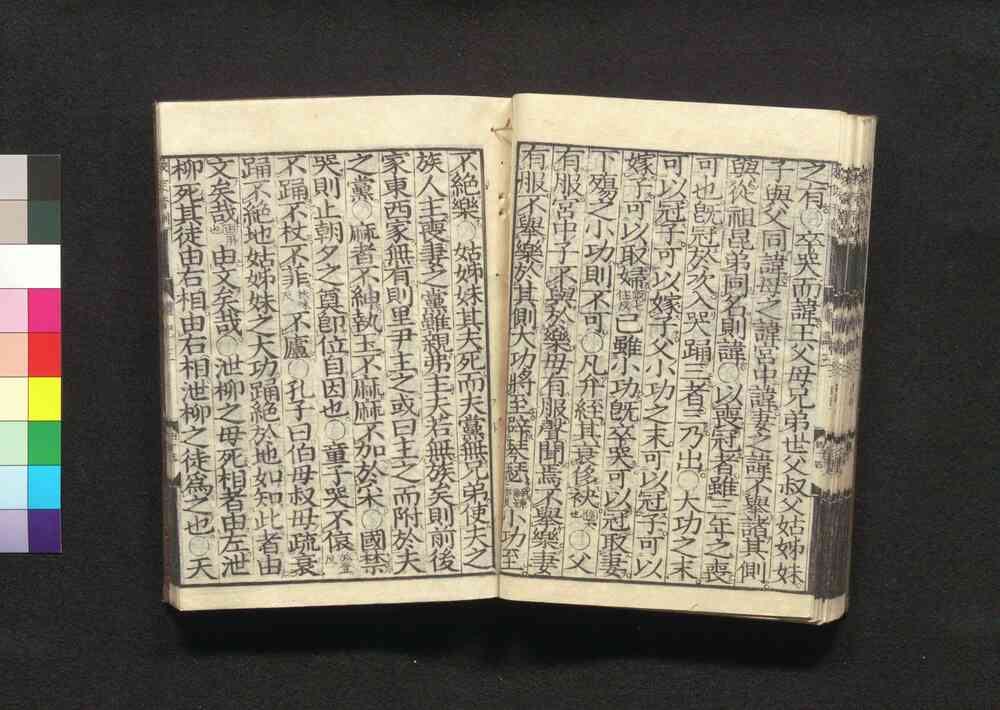 之有○卒哭而諱王父母兄弟世父叔父姑姊妹
子與父同諱母之諱宮中諱妻之諱不舉諸其側
與從祖昆弟同名則諱○以喪冠者雖三年之喪
可也旣冠於次入哭踊三者三乃出○大功之末
可以冠子可以嫁子父小功之末可以冠子可以
嫁子可以取婦己雖小功旣卒哭可以冠取妻
下殤之小功則不可○凡弁絰其衰侈袂○父
有服宮中子不與於樂母有服聲聞焉不舉樂妻
有服不舉樂於其側大功將至辟琴瑟小功至
不絶樂○姑姊妹其夫死而夫黨無兄弟使夫之
族人主喪妻之黨雖親弗主夫若無族矣則前後
家東西家無有則里尹主之或曰主之而附於夫
之黨○麻者不紳執玉不麻麻不加於采○國禁
哭則止朝夕之奠卽位自因也○童子哭不偯
不踊不杖不菲不廬○孔子曰伯母叔母疏衰
踊不絶地姑姊妹之大功踊絶於地如知此者由
文矣哉由文矣哉○泄柳之母死相者由左泄
柳死其徒由右相由右相泄柳之徒爲之也○天